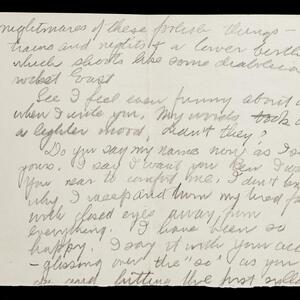 nightmares of these foolish things —
trains and nights & a lower berth
which shoots like some diabolical
rocket East
Gee I feel even funny about
when I write you. My words took
a lighter mood, didn't they?
Do you say my name now as I say
yours. I say I want you Dear I want
you near to comfort me. I don't know
why I weep and turn my tired
with closed eyes away from
everything. I have been so
happy. I say it with your
— glissing over the "so" as you
do and hitting the first